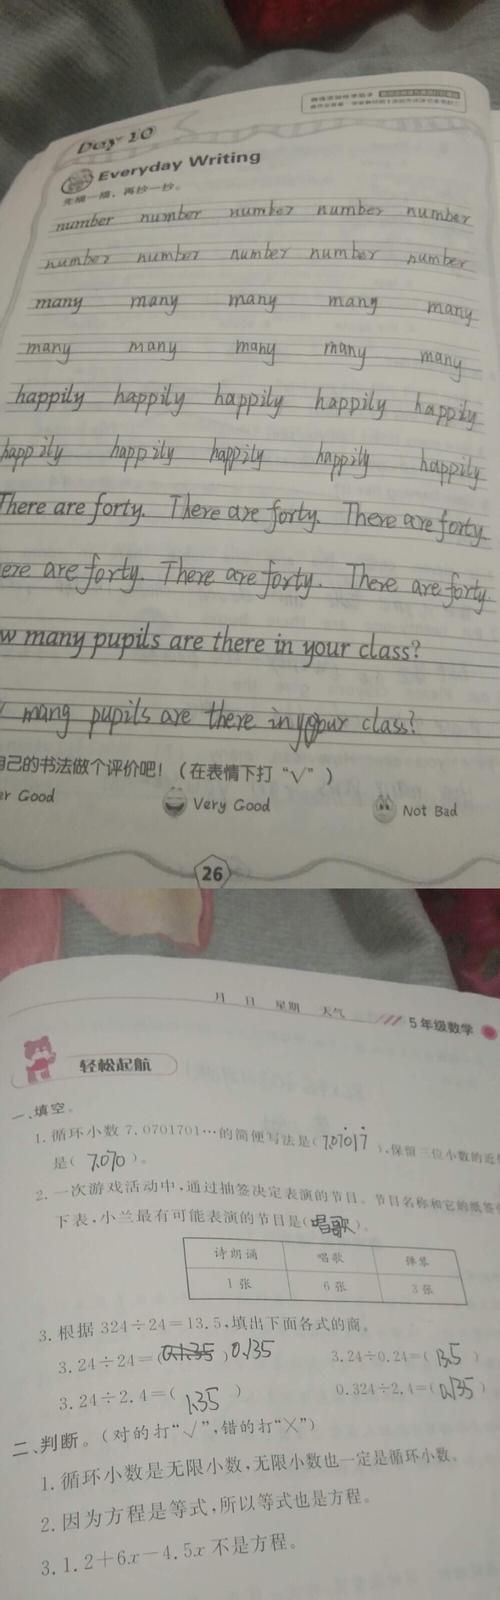 Day 10
Everyday Writing
先描一描，再抄一抄。
number number number number number
number number number number number
many many many many many
many many many many many
happily happily happily happily happily
happily happily happily happily happily
There are forty. There are forty. There are forty.
ere are forty. There are forty. There are forty.
w many pupils are there in your class?
many pupils are there in your class?
自己的书法做个评价吧！（在表情下打“√”）
er Good Very Good Not Bad
26
月 日 星期 天气 5年级数学
轻松起航
一、填空。
1. 循环小数7.0701701…的简便写法是( 7.07017 ),保留三位小数的近
是( 7.070 )。
2. 一次游戏活动中,通过抽签决定表演的节目。节目名称和它的纸签
下表,小兰最有可能表演的节目是(唱歌)。
诗朗诵 唱歌 弹琴
1张 6张 3张
3. 根据324÷24=13.5,填出下面各式的商。
3.24÷24=(0.135) 0.135 3.24÷0.24=( 13.5 )
3.24÷2.4=( 1.35 ) 0.324÷2.4=( 0.135 )
二、判断。(对的打“√”,错的打“×”)
1. 循环小数是无限小数,无限小数也一定是循环小数。
2. 因为方程是等式,所以等式也是方程。
3. 1.2+6x-4.5x不是方程。